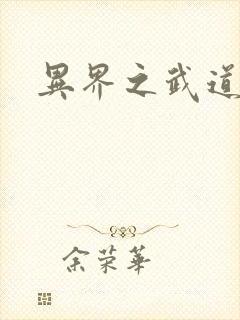 異界之武道
余荣華